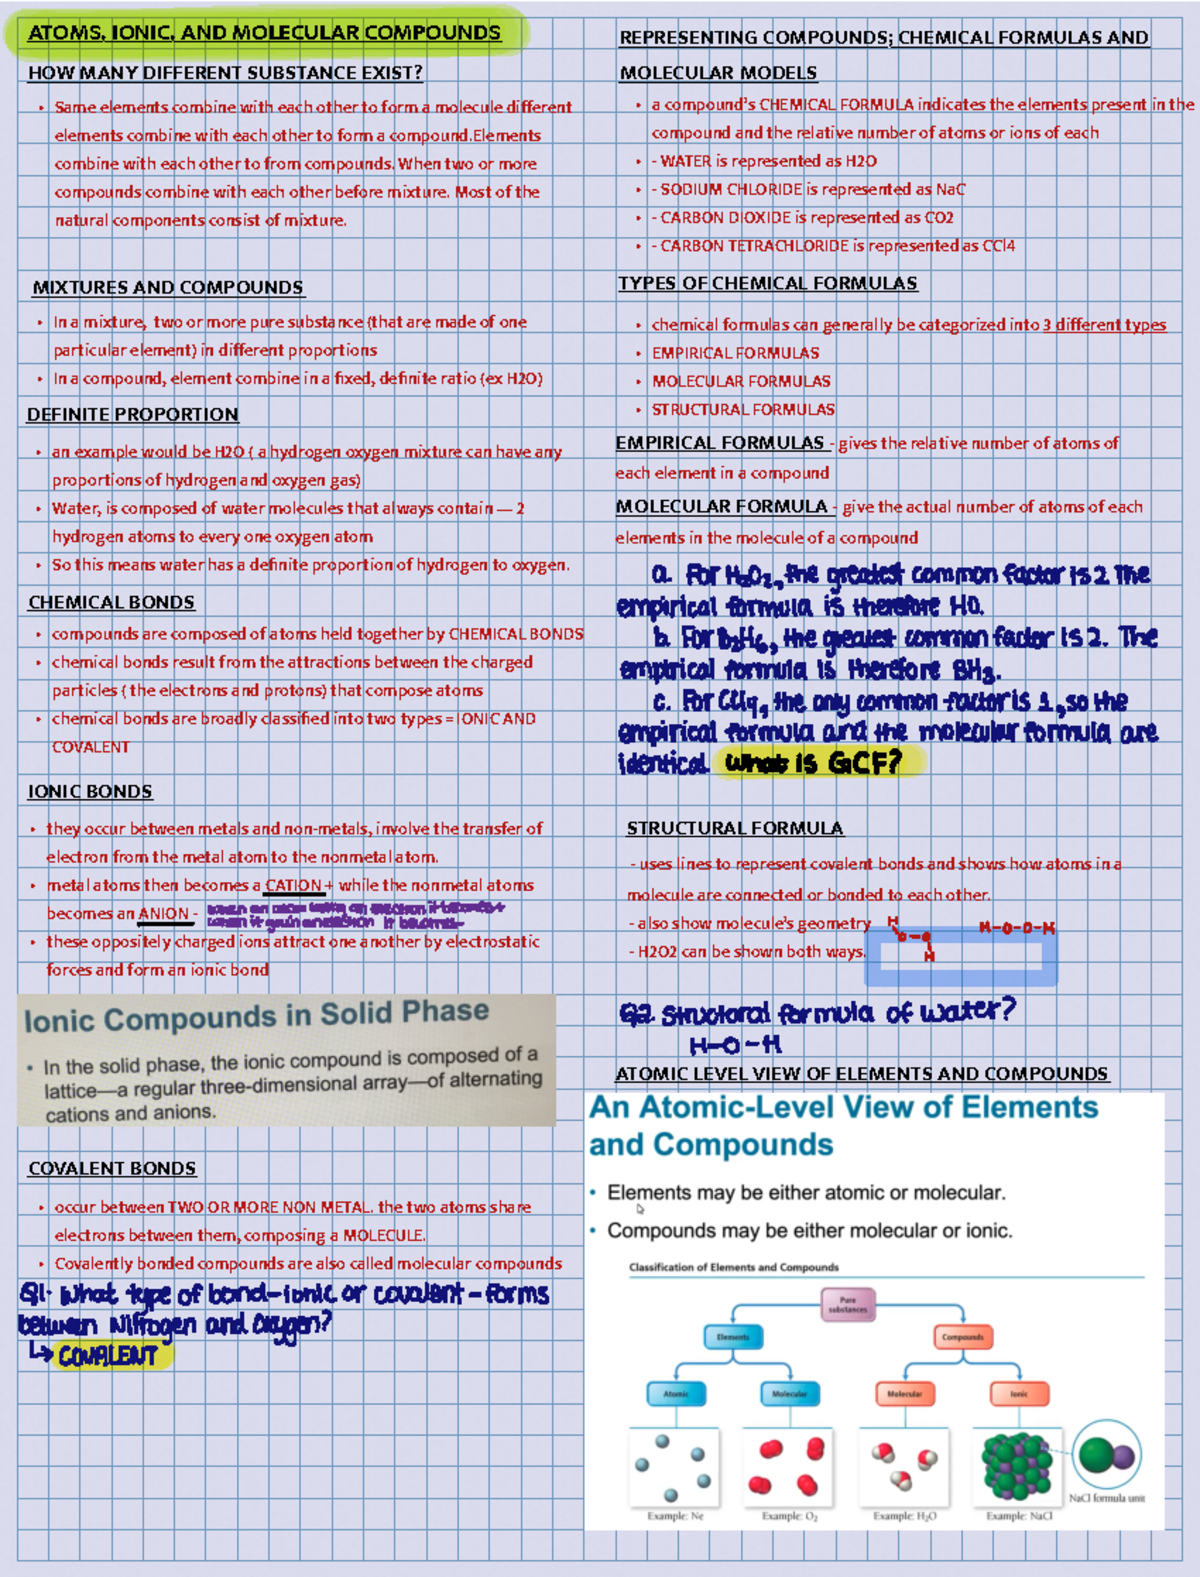 ATOMS, IONIC, AND MOLECULAR COMPOUNDS
HOW MANY DIFFERENT SUBSTANCE EXIST?
• Same elements combine with each other to form a molecule different
elements combine with each other to form a compound.Elements
combine with each other to from compounds. When two or more
compounds combine with each other before mixture. Most of the
natural components consist of mixture.
MIXTURES AND COMPOUNDS
• In a mixture, two or more pure substance (that are made of one
particular element) in different proportions
• In a compound, element combine in a fixed, definite ratio (ex H2O)
DEFINITE PROPORTION
• an example would be H2O ( a hydrogen oxygen mixture can have any
proportions of hydrogen and oxygen gas)
• Water, is composed of water molecules that always contain — 2
hydrogen atoms to every one oxygen atom
• So this means water has a definite proportion of hydrogen to oxygen.
CHEMICAL BONDS
• compounds are composed of atoms held together by CHEMICAL BONDS
• chemical bonds result from the attractions between the charged
particles ( the electrons and protons) that compose atoms
• chemical bonds are broadly classified into two types = IONIC AND
COVALENT
IONIC BONDS
• they occur between metals and non-metals, involve the transfer of
electron from the metal atom to the nonmetal atom.
• metal atoms then becomes a CATION + while the nonmetal atoms
becomes an ANION -
when an atom loses an electron it becomes +
when it gain an electron it becomes -
• these oppositely charged ions attract one another by electrostatic
forces and form an ionic bond
Ionic Compounds in Solid Phase
• In the solid phase, the ionic compound is composed of a
lattice—a regular three-dimensional array—of alternating
cations and anions.
COVALENT BONDS
• occur between TWO OR MORE NON METAL. the two atoms share
electrons between them, composing a MOLECULE.
• Covalently bonded compounds are also called molecular compounds
Q1. What type of bond-ionic or covalent-forms
between Nitrogen and Oxygen?
↳ COVALENT
REPRESENTING COMPOUNDS; CHEMICAL FORMULAS AND
MOLECULAR MODELS
• a compound's CHEMICAL FORMULA indicates the elements present in the
compound and the relative number of atoms or ions of each
• - WATER is represented as H2O
• - SODIUM CHLORIDE is represented as NaC
• - CARBON DIOXIDE is represented as CO2
• - CARBON TETRACHLORIDE is represented as CCl4
TYPES OF CHEMICAL FORMULAS
• chemical formulas can generally be categorized into 3 different types
• EMPIRICAL FORMULAS
• MOLECULAR FORMULAS
• STRUCTURAL FORMULAS
EMPIRICAL FORMULAS - gives the relative number of atoms of
each element in a compound
MOLECULAR FORMULA - give the actual number of atoms of each
elements in the molecule of a compound
a. For H₂O₂, the greatest common factor is 2 The
empirical formula is therefore HO.
b. For B₂H₆, the greatest common factor is 2. The
empirical formula is therefore BH₃.
c. For CCl₄, the only common factor is 1, so the
empirical formula and the molecular formula are
identical. What is GCF?
STRUCTURAL FORMULA
- uses lines to represent covalent bonds and shows how atoms in a
molecule are connected or bonded to each other.
- also show molecule's geometry
- H2O2 can be shown both ways.
H
O-O
H
H-O-O-H
Q2. Structoral formula of water?
H-O-H
ATOMIC LEVEL VIEW OF ELEMENTS AND COMPOUNDS
An Atomic-Level View of Elements
and Compounds
• Elements may be either atomic or molecular.
• Compounds may be either molecular or ionic.
Classification of Elements and Compounds
Pure
substances
Elements
Compounds
Atomic
Molecular
Molecular
Ionic
NaCl formula unit
Example: Ne
Example: O₂
Example: H₂O
Example: NaCl